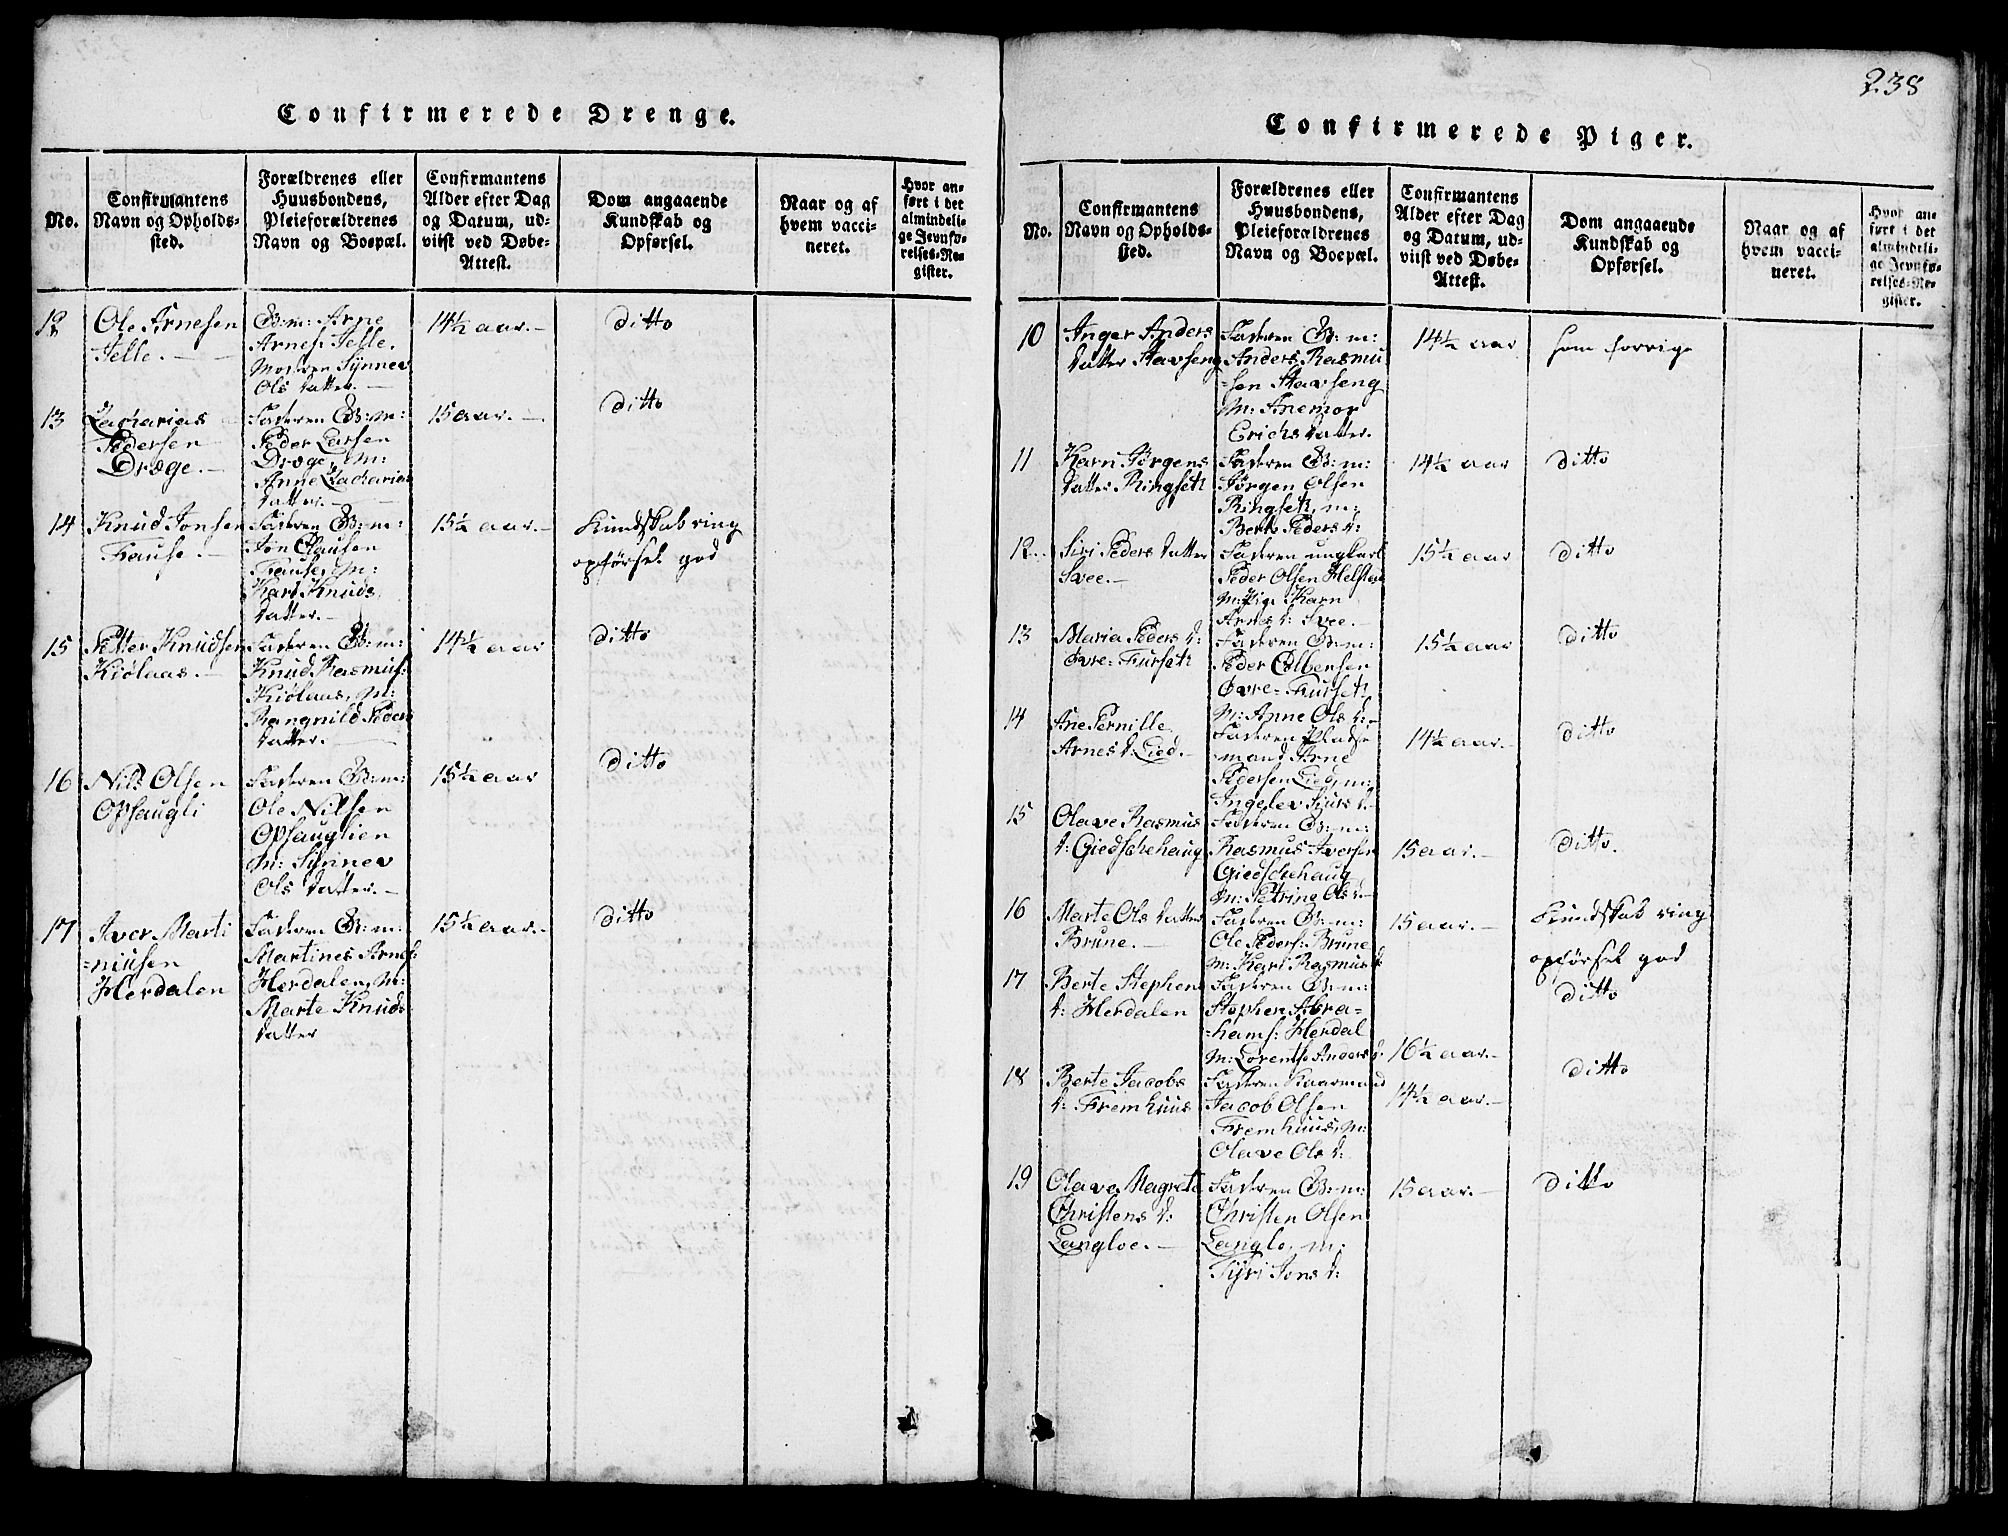 238
Confirmerede Drenge.
No.
Confirmantens
Navn og Opholds-
sted.
Forældrenes eller
Huusbondens,
Pleieforældrenes
Navn og Boepæl.
Confirmantens
Alder efter Dag
og Datum, ud-
viist ved Døbe-
Attest.
Dom angaaende
Kundskab og
Opførsel.
Naar og af
hvem vacci-
neret.
Hvor an-
ført i det
almindeli-
ge Jevnfø-
relses-Re-
gister.
12
Ole Arnesen
Selle. —
G:m: Arne
Arnes. Selle,
Moderen Synnev
Ols datter. —
14½ aar. —
ditto
13
Zacharias
Pedersen
Drøge. —
Faderen G:m:
Peder Larsen
Drøge, m:
Anne Zacharias
datter. —
15 aar. —
ditto
14
Knud Jonsen
Frause. —
Faderen G:m:
Jon Clausen
Frause, m:
Kari Knuds
datter. —
15½ aar. —
Kundskab ring
opførsel god
15
Petter Knudsen
Kiölaas. —
Faderen G:m:
Knud Rasmus:
Kiölaas, m:
Rangnild Peders
datter. —
14½ aar
ditto
16
Nils Olsen
Opsaugli
Faderen G:m:
Ole Nilsen
Opsauglien
m: Synnev
Ols datter. —
15½ aar
ditto
17
Iver Marti
=niusen
Herdalen
Faderen G:m:
Martines Arnes:
Herdalen, m:
Marte Knuds
datter
15½ aar. —
ditto
Confirmerede Piger.
No.
Confirmantens
Navn og Opholds-
sted.
Forældrenes eller
Huusbondens,
Pleieforældrenes
Navn og Boepæl.
Confirmantens
Alder efter Dag
og Datum, ud-
viist ved Døbe-
Attest.
Dom angaaende
Kundskab og
Opførsel.
Naar og af
hvem vacci-
neret.
Hvor an-
ført i det
almindeli-
ge Jevnfø-
relses-Re-
gister.
10
Inger Anders
datter Stavseng
Faderen G:m:
Anders Rasmu
=sen Stavseng
m: Anemor
Erichs datter.
14½ aar
som forrige
11
Karn Jörgens
datter Ringset
Faderen G:m:
Jörgen Olsen
Ringset, m:
Berte Peders d:
14½ aar
ditto
12
Siri Peders datter
Svee. —
Faderen ungkarl
Peder Olsen
m: Pige Karn
Arnes d: Svee. —
15½ aar
ditto
13
Maria Peders d:
Övre=Furset
Faderen G:m:
Peder Colbensen
Övre=Furset
m: Anne Ols d: —
15½ aar
ditto
14
Ane Pernille
Arnes d: Lied. —
Faderen Pladse
=mand Arne
Pedersen Lied, m:
Ingelev Siurs d—
14½ aar. —
ditto
15
Olave Rasmus
d: Giedschehaug
Faderen G:m:
Rasmus Iversen
Giedschehaug
m: Petrine Ols d—
15 aar. —
ditto.
16
Marte Ols datter
Brune. —
Faderen G:m:
Ole Peders: Brune
m: Kari Rasmus d
15 aar. —
Kundskab ring
opførsel god
17
Berte Stephens
d: Herdalen
Faderen G:m:
Stephen Abra=
=hams: Herdal
m: Lorentse Anders d:
16½ aar. —
ditto
18
Berte Jacobs
d: Fremhuus
Faderen Kaarmand
Jacob Olsen
Fremhuus, m:
Olave Ols d:
14½ aar. —
ditto
19
Olava Magrete
Christens d:
Langloe. —
Faderen G:m:
Christen Olsen
Langlo, m:
Tyri Jons d:
15 aar. —
ditto